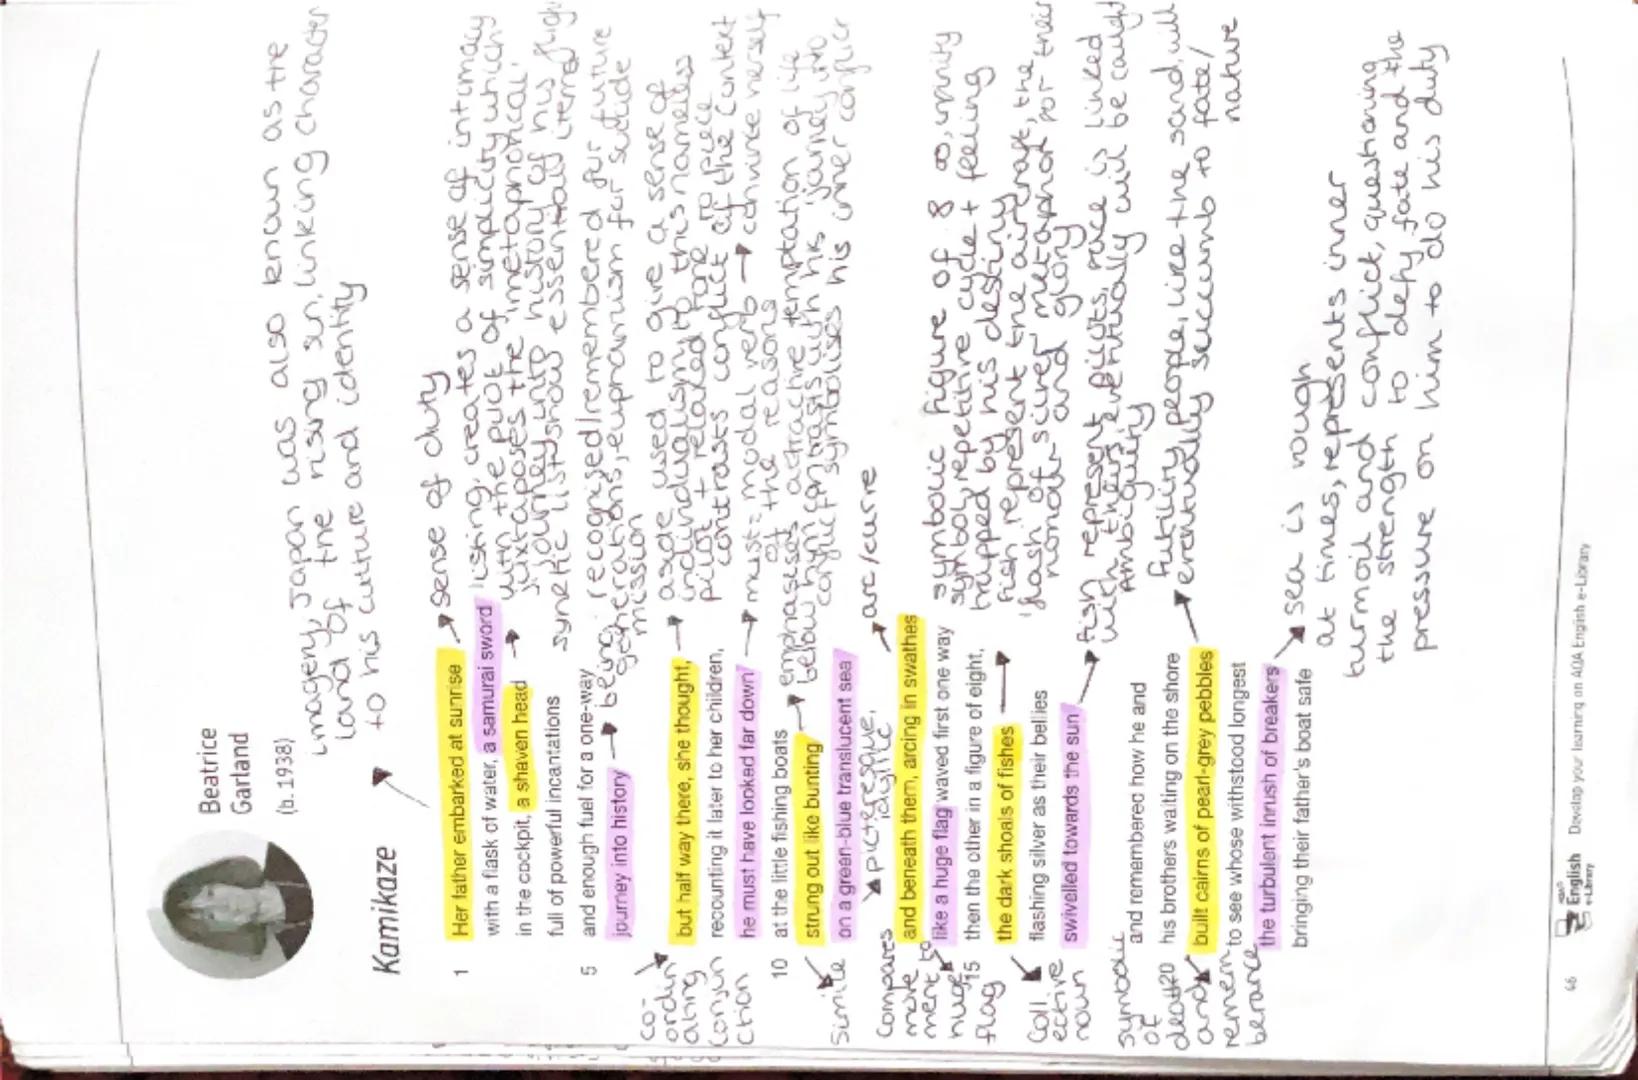 Beatrice
Garland
(b.1938)
imagery, Japan was also known as the
land of the rising sun, linking character
to his culture and identity
Kamikaze
1 Her father embarked at sunrise
sense of duty
with a flask of water, a samurai sword
listing, creates a sense of intimacy
with the pilot of simplicity which
in the cockpit, a shaven head
juxtaposes the 'metaphorical'
journey into history of his
full of powerful incantations
synetic list, show essential
5 and enough fuel for a one-way
journey into history
being recognised/remembered for future
generations, euphemism for suicide
mission
co-
ordin
ating
conjun
ction
but half way there, she thought,
aside used to give a sense of
individualism to this nameless
recounting it later to her children,
pilot + related tone to piece
contrasts conflict of the context
he must have looked far down
must = modal verb
convince herself
of the reasons
10 at the little fishing boats
strung out like bunting
emphasises attractive temptation of life
below him contrasts with his journey into
conflict, symbolises his inner conflict
Simile
on a green-blue translucent sea
picturesque,
idyllic
arc/curve
and beneath them, arcing in swathes
Compares
move
ment to
huge
flag
like a huge flag waved first one way
15 then the other in a figure of eight,
symbolic figure of 8 ∞, infinity
symbol, repetitive cycle + feeling
trapped by his destiny
the dark shoals of fishes
Coll
ective
noun
fish represent the aircraft, the
'flash of silver' metaphor for their
honour and glory
flashing silver as their bellies
swivelled towards the sun
fish represent pilots, race is linked
which theirs eventually will be caught
Ambiguery
and remembered how he and
20 his brothers waiting on the shore
built cairns of pearl-grey pebbles
symbolic
of
death
and
remem
berance
futility people, like the sand, will
eventually succumb to fate/
nature
to see whose withstood longest
the turbulent inrush of breakers
bringing their father's boat safe
sea is rough
at times, represents inner
turmoil and conflict, questioning
the strength to defy fate and the
pressure on him to do his duty
66
AQA
English
e-Library
Develop your learning on AQA English e-Library